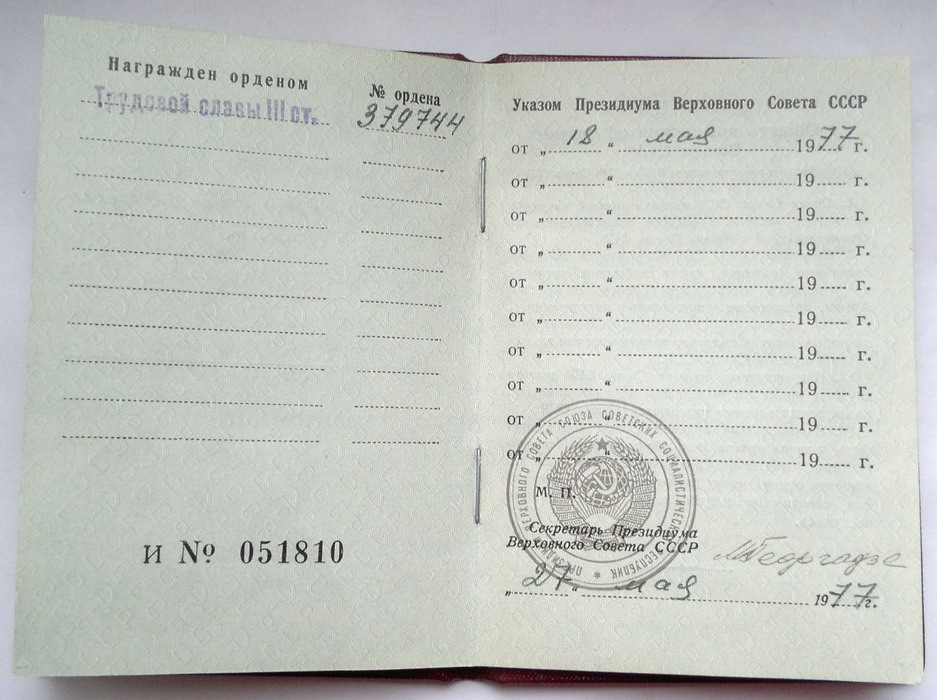 Награжден орденом
№ ордена
Трудовой славы III ст.
379744
И № 051810
Указом Президиума Верховного Совета СССР
от „ 18 “ мая 1977 г.
от „ “ 19 г.
от „ “ 19 г.
от „ “ 19 г.
от „ “ 19 г.
от „ “ 19 г.
от „ “ 19 г.
от „ “ 19 г.
от „ “ 19 г.
от „ “ 19 г.
М. П.
ПРЕЗИДИУМ ВЕРХОВНОГО СОВЕТА СОЮЗА СОВЕТСКИХ СОЦИАЛИСТИЧЕСКИХ РЕСПУБЛИК
Секретарь Президиума
Верховного Совета СССР
МГеоргадзе
„ 27 “ мая 1977 г.